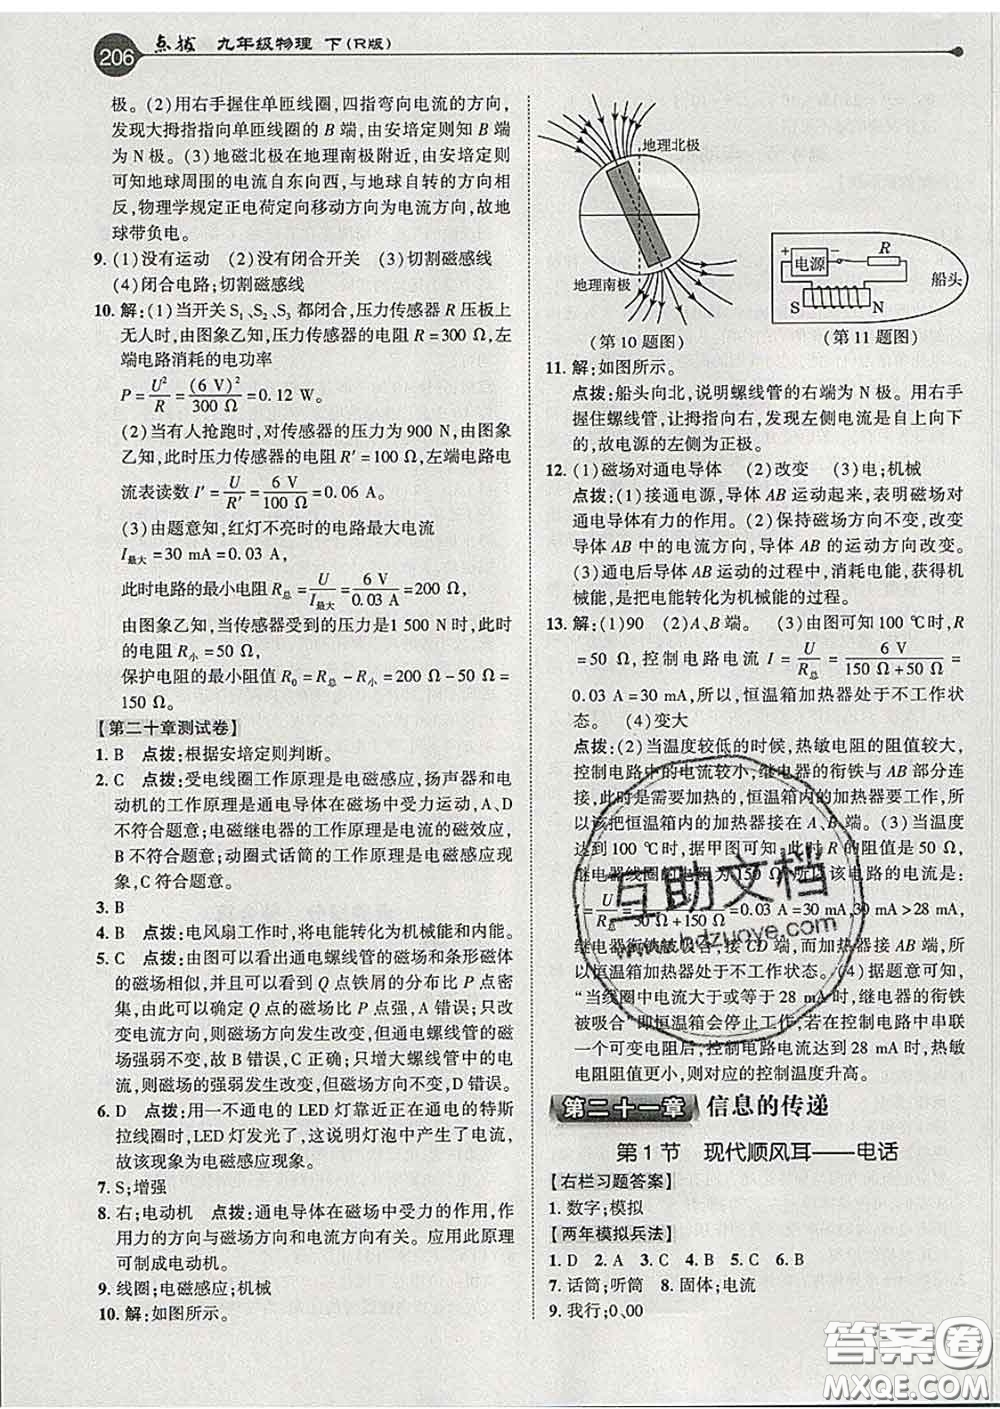 206
点拨 九年级物理 下(R版)
极。(2)用右手握住单匝线圈,四指弯向电流的方向,
发现大拇指指向单匝线圈的 B 端,由安培定则知 B 端
为 N 极。(3)地磁北极在地理南极附近,由安培定则
可知地球周围的电流自东向西,与地球自转的方向相
反,物理学规定正电荷定向移动方向为电流方向,故地
球带负电。
9. (1)没有运动 (2)没有闭合开关 (3)切割磁感线
(4)闭合电路;切割磁感线
10. 解:(1)当开关 S₁、S₂、S₃ 都闭合,压力传感器 R 压板上
无人时,由图象乙知,压力传感器的电阻 R = 300 Ω,左
端电路消耗的电功率
P = U²/R = (6 V)²/300 Ω = 0.12 W。
(2)当有人抢跑时,对传感器的压力为 900 N,由图象
乙知,此时压力传感器的电阻 R′ = 100 Ω,左端电路电
流表读数 I′ = U/R′ = 6 V/100 Ω = 0.06 A。
(3)由题意知,红灯不亮时的电路最大电流
I最大 = 30 mA = 0.03 A,
此时电路的最小电阻 R总 = U/I最大 = 6 V/0.03 A = 200 Ω,
由图象乙知,当传感器受到的压力是1 500 N时,此时
的电阻 R小 = 50 Ω,
保护电阻的最小阻值 R₀ = R总 − R小 = 200 Ω − 50 Ω =
150 Ω。
【第二十章测试卷】
1. B 点拨:根据安培定则判断。
2. C 点拨:受电线圈工作原理是电磁感应,扬声器和电
动机的工作原理是通电导体在磁场中受力运动,A、D
不符合题意;电磁继电器的工作原理是电流的磁效应,
B 不符合题意;动圈式话筒的工作原理是电磁感应现
象,C 符合题意。
3. B
4. B 点拨:电风扇工作时,将电能转化为机械能和内能。
5. C 点拨:由图可以看出通电螺线管的磁场和条形磁体
的磁场相似,并且可以看到 Q 点铁屑的分布比 P 点密
集,由此可以确定 Q 点的磁场比 P 点强,A 错误;只改
变电流方向,则磁场方向发生改变,但通电螺线管的磁
场强弱不变,故 B 错误,C 正确;只增大螺线管中的电
流,磁场的强弱发生改变,但磁场方向不变,D 错误。
6. D 点拨:用一不通电的 LED 灯靠近正在通电的特斯
拉线圈时,LED 灯发光了,这说明灯泡中产生了电流,
故该现象为电磁感应现象。
7. S;增强
8. 右;电动机 点拨:通电导体在磁场中受力的作用,作
用力的方向与磁场方向和电流方向有关。应用此原理
可制成电动机。
9. 线圈;电磁感应;机械
10. 解:如图所示。
地理北极
地理南极
(第 10 题图)
+ −
电源
R
S N
船头
(第 11 题图)
11. 解:如图所示。
点拨:船头向北,说明螺线管的右端为 N 极。用右手
握住螺线管,让拇指向右,发现左侧电流是自上向下
的,故电源的左侧为正极。
12. (1)磁场对通电导体 (2)改变 (3)电;机械
点拨:(1)接通电源,导体 AB 运动起来,表明磁场对
通电导体有力的作用。(2)保持磁场方向不变,改变
导体 AB 中的电流方向,导体 AB 的运动方向改变。
(3)通电后导体 AB 运动的过程中,消耗电能,获得机
械能,是把电能转化为机械能的过程。
13. 解:(1)90 (2)A、B 端。 (3)由图可知100 ℃时,R
= 50 Ω,控制电路电流 I = U/R总 = 6 V/(150 Ω + 50 Ω) =
0.03 A = 30 mA,所以,恒温箱加热器处于不工作状
态。 (4)变大
点拨:(2)当温度较低的时候,热敏电阻的阻值较大,
控制电路中的电流较小,继电器的衔铁与 AB 部分连
接,此时是需要加热的,恒温箱内的加热器要工作,所
以该把恒温箱内的加热器接在 A、B 端。(3)当温度
达到 100 ℃时,据甲图可知,此时 R 的阻值是 50 Ω,
继电器线圈的电阻为150 Ω,所以该电路的电流是:
I = U/R总 = 6 V/(50 Ω + 150 Ω) = 0.03 A = 30 mA,30 mA > 28 mA,
继电器衔铁被吸合,接 CD 端,而加热器接 AB 端,所
以恒温箱加热器处于不工作状态。(4)据题意可知,
“当线圈中电流大于或等于 28 mA 时,继电器的衔铁
被吸合”即恒温箱会停止工作,若在控制电路中串联
一个可变电阻后,控制电路电流达到 28 mA 时,热敏
电阻阻值更小,则对应的控制温度升高。
第二十一章 信息的传递
第 1 节 现代顺风耳——电话
【右栏习题答案】
1. 数字;模拟
【两年模拟兵法】
1. D 2. A 3. C 4. B 5. C 6. B
7. 话筒;听筒 8. 固体;电流
9. 我行;0、00
互助文档
www.hdzuoye.com
答案圈
MXQE.COM